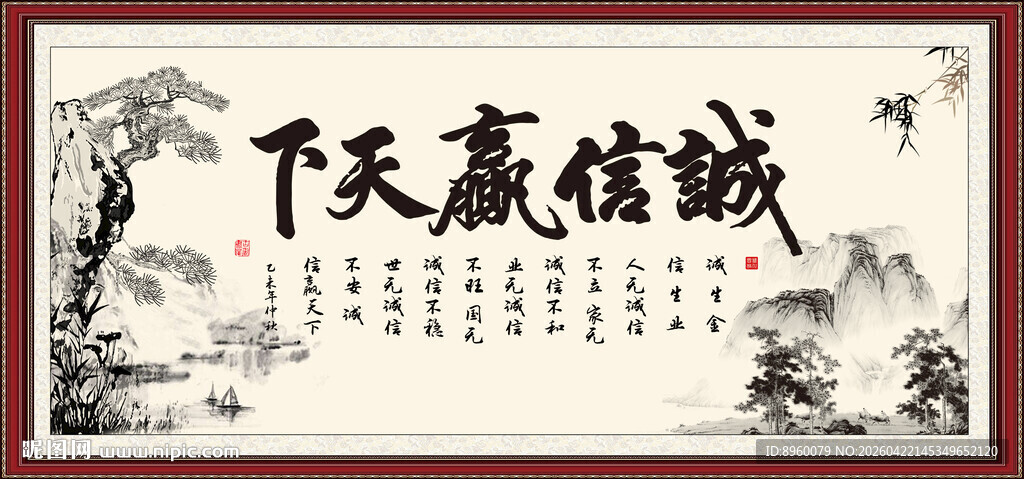 誠信贏天下
诚生金
信生业
人无诚信
不立家无
诚信不和
业无诚信
不旺国无
诚信不稳
世无诚信
不安诚
信赢天下
乙未年仲秋
昵图网 www.nipic.com
ID:8960079 NO:20260422145349652120